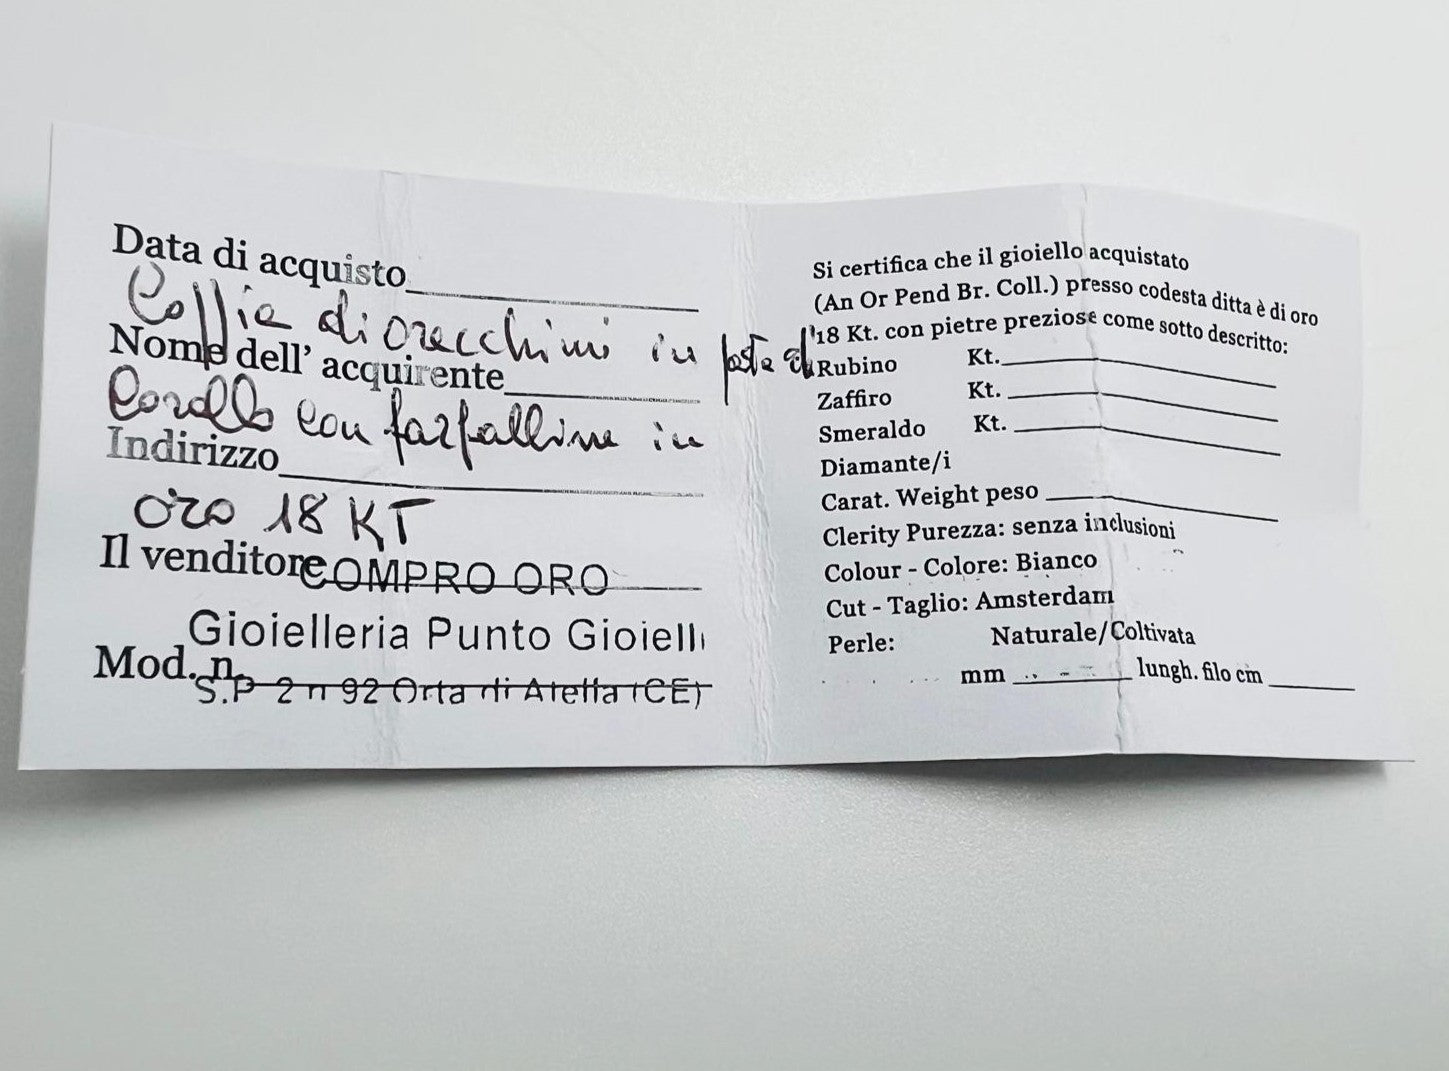 Data di acquisto
Coppia di orecchini in pasta di
Nome dell' acquirente
Corallo con farfalline in
Indirizzo
oro 18 KT
Il venditore
COMPRO ORO
Gioielleria Punto Gioielli
Mod. n.
S.P 2 n 92 Orta di Atella (CE)
Si certifica che il gioiello acquistato
(An Or Pend Br. Coll.) presso codesta ditta è di oro
18 Kt. con pietre preziose come sotto descritto:
Rubino Kt.
Zaffiro Kt.
Smeraldo Kt.
Diamante/i
Carat. Weight peso
Clerity Purezza: senza inclusioni
Colour - Colore: Bianco
Cut - Taglio: Amsterdam
Perle: Naturale/Coltivata
mm lungh. filo cm